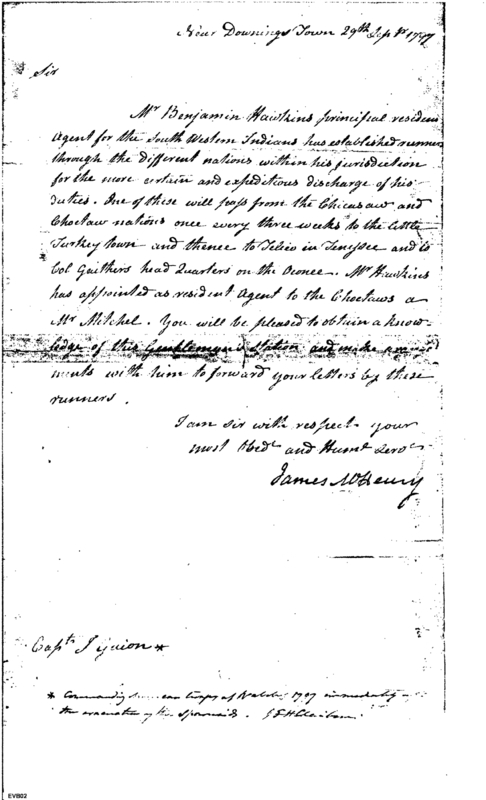 Near Downings Town 29th Sepr 1797
Sir
Mr Benjamin Hawkins principal resident
Agent for the South Western Indians has established runners
through the different nations within his jurisdiction
for the more certain and expeditious discharge of his
duties. One of these will pass from the Chicasaw and
Choctaw nations once every three weeks to the little
Turkey town and thence to Telico in Tenessee and to
Col Gaithers head Quarters on the Oconee. Mr Hawkins
has appointed as resident Agent to the Choctaws a
Mr Mitchel. You will be pleased to obtain a know-
ledge of this Gentlemans station and make
ments with him to forward your letters by these
runners.
I am sir with respect your
most Obedt and Humb Servt
James McHenry
Captn I Guion *
* Commanding American troops at Natchez 1797 immediately
the evacuation of the Spaniards. Claiborne
EVB02